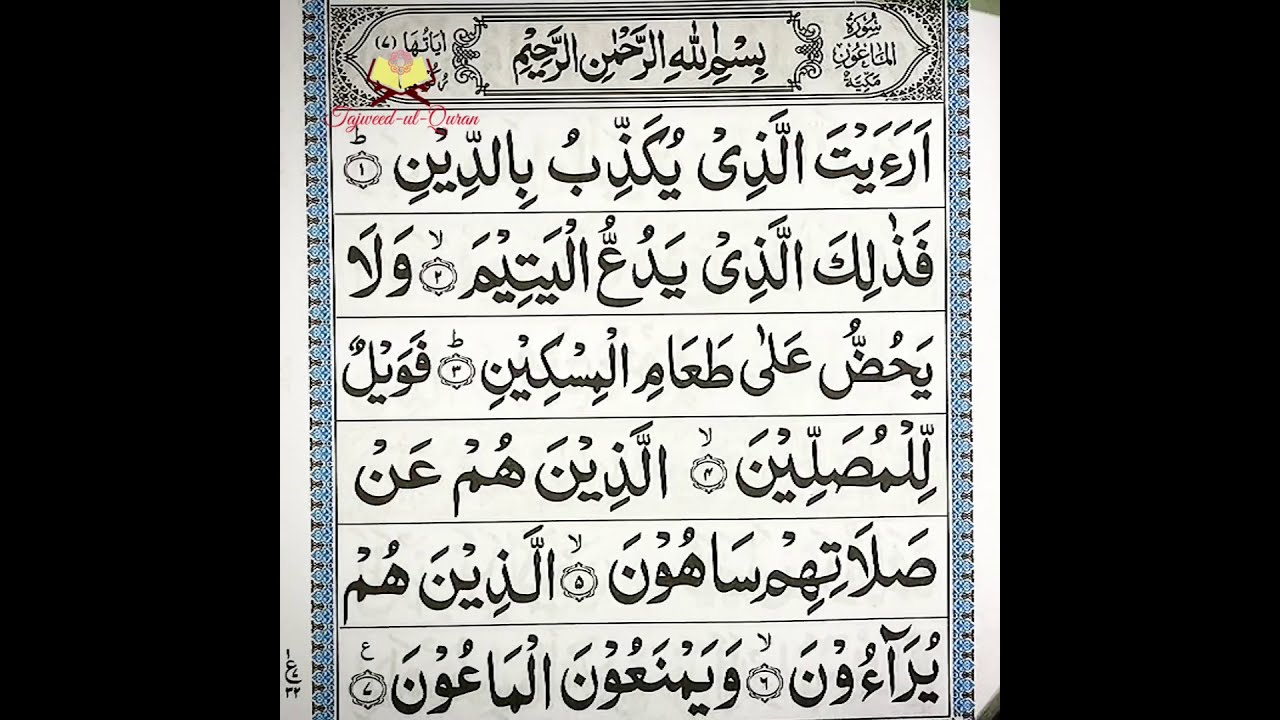 سُوْرَةُ الْمَاعُوْنِ مَكِّيَّةٌ
بِسْمِ اللّٰهِ الرَّحْمٰنِ الرَّحِيْمِ
اٰيَاتُهَا (٧)
Tajweed-ul-Quran
اَرَءَيْتَ الَّذِیْ يُكَذِّبُ بِالدِّيْنِ ؕ ١
فَذٰلِكَ الَّذِیْ يَدُعُّ الْيَتِيْمَ ۙ ٢ وَلَا
يَحُضُّ عَلٰى طَعَامِ الْمِسْكِيْنِ ؕ ٣ فَوَيْلٌ
لِّلْمُصَلِّيْنَ ۙ ۴ الَّذِيْنَ هُمْ عَنْ
صَلَاتِهِمْ سَاهُوْنَ ۙ ۵ الَّذِيْنَ هُمْ
يُرَآءُوْنَ ۙ ٦ وَيَمْنَعُوْنَ الْمَاعُوْنَ ع ٧